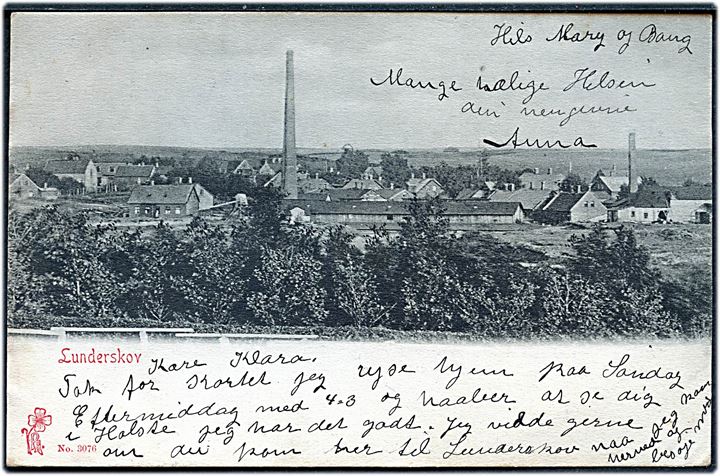 Hils Mary og Bang
Mange Hilsen
din
Anna
Lunderskov
Kære Klara.
Tak for Kortet jeg hjem paa Søndag
Eftermiddag med 4-3 og at se dig
i Holste jeg har det godt. Jeg vilde gerne
om du kom her til Lunderskov naa jeg
No. 3076
besøge